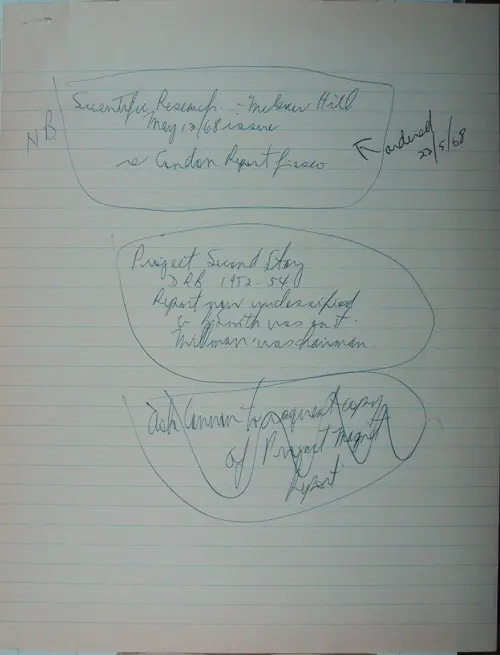 N.B.
Scientific Research - McGraw Hill
May 13/68 issue
re Condon Report fiasco
ordered
23/5/68
Project Second Story
DRB 1952-54
Report now unclassified
Smith was on it.
Millman was chairman.
Ask to request copy
of Project Magnet
Report